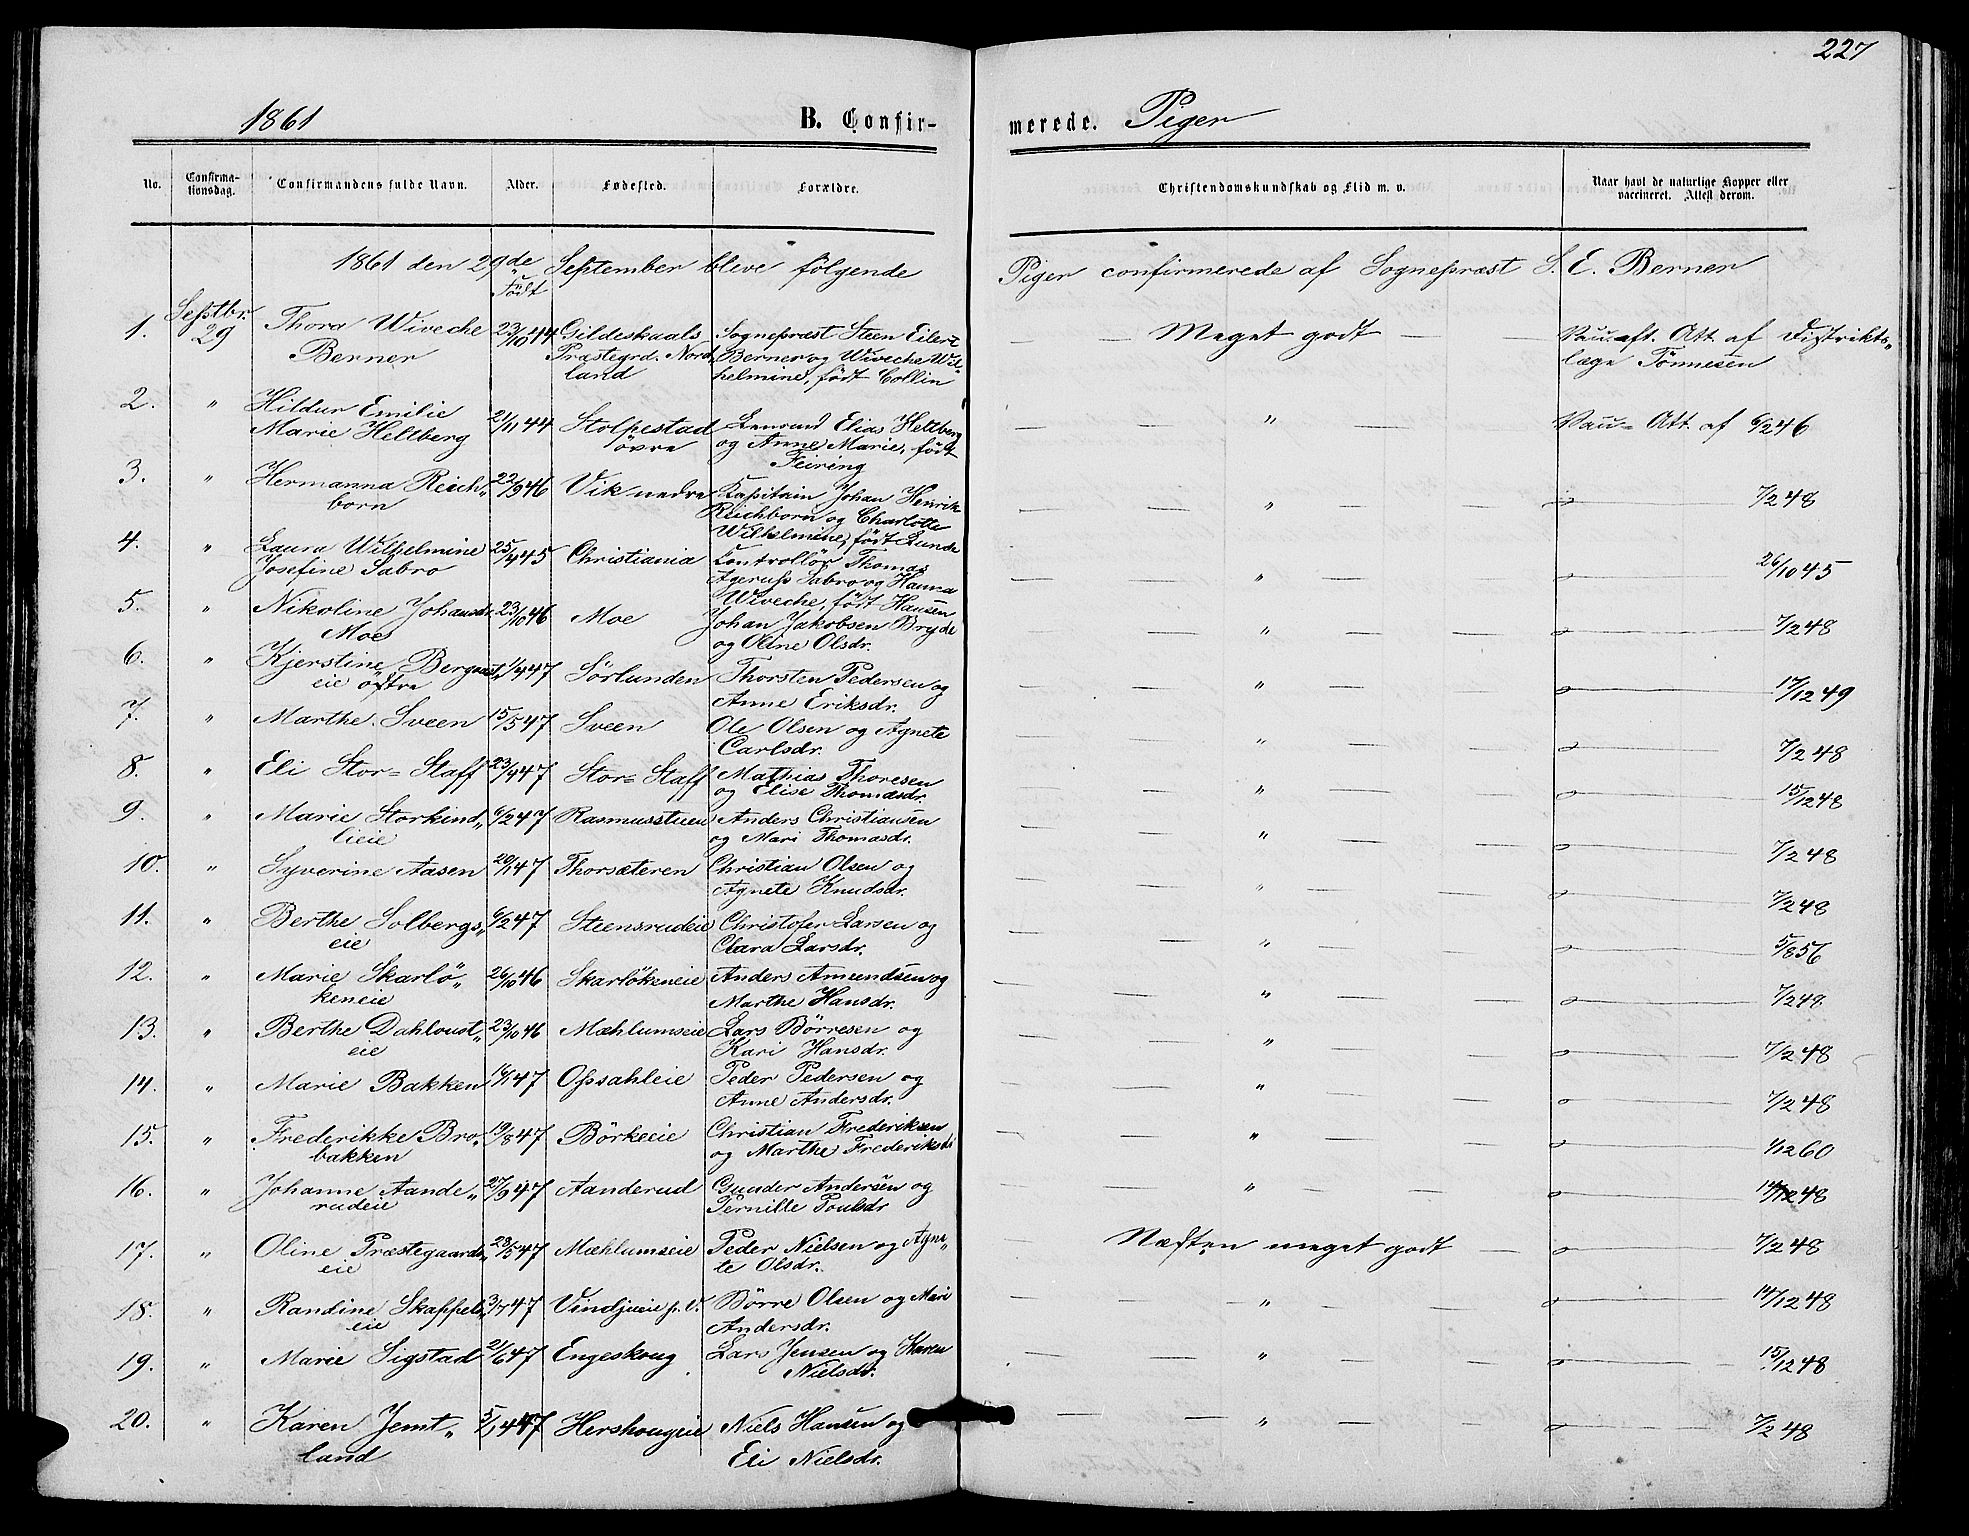 227
1861 B. Confir- merede. Piger
No. Confirma-tionsdag. Confirmandens fulde Navn. Alder. Fødested. Forældre. Christendomskundskab og Flid m. v. Naar havt de naturlige Kopper eller vaccineret. Attest derom.
1861 den 29de September bleve følgende Piger confirmerede af Sognepræst S. E. Berner
Født
1. Septbr. 29 Thora Wiveche 23/10 44 Gildeskaals Sognepræst Steen Eilert — — Meget godt — — Vacc. aft. Att. af Distrikts„
Berner Præstegrd. Nord„ Berner og Wiveche Wil„ læge Tönnesen
land helmine, født Collin
2. „ Hildur Emilie 21/11 44 Stolpestad Elias Heltberg — — „ — Att. af 6/2 46
Marie Heltberg övre og Anne Marie, født
Feiring
3. „ Hermanna Reich„ 22/9 46 Vik nedre Kapitain Johan Henrik — — „ — — 7/2 48
born Reichborn og Charlotte
Wilhelmine, født Lunde
4. „ Laura Wilhelmine 25/4 45 Christiania Controllör Thomas — — „ — — 26/10 45
Josefine Sabro Sabro og Hanna
Wiveche, født Hansen
5. „ Nikoline Johansdr. 23/10 46 Moe Johan Jakobsen Bryde — — „ — — 7/2 48
Moe og Oline Olsdr.
6. „ Kjerstine 1/4 47 Sörlunden Thorsten Pedersen og — — „ — — 17/12 49
eie östre Anne Eriksdr.
7. „ Marthe Sveen 15/5 47 Sveen Ole Olsen og Agnete — — „ — — 7/2 48
Carlsdr.
8. „ Eli Stor=Staff 23/4 47 Stor=Staff Mathias Thoresen — — „ — — 15/12 48
og Elise Thomasdr.
9. „ Marie Storkind„ 6/2 47 Rasmusstuen Anders Christiansen — — „ — — 7/2 48
lieie og Mari Thomasdr.
10. „ Syverine Aasen 20/1 47 Thorsæteren Christian Olsen og — — „ — — 7/2 48
Agnete Knudsdr.
11. „ Berthe Solbergs„ 6/2 47 Steensrudeie Christofer Larsen og — — „ — — 5/8 56
eie Clara Larsdr.
12. „ Marie Skarlö„ 26/10 46 Skarlökeneie Anders Amundsen og — — „ — — 7/2 48
keneie Marthe Hansdr.
13. „ Berthe 23/10 46 Mæhlumseie Lars Börresen og — — „ — — 7/2 48
eie Kari Hansdr.
14. „ Marie Bakken 16/1 47 Opsahleie Peder Pedersen og — — „ — — 7/2 48
Anne Andersdr.
15. „ Frederikke Bro„ 19/8 47 Börkeeie Christian Frederiksen — — „ — — 1/12 60
bakken og Marthe Frederiksdr
16. „ Johanne Aande„ 27/9 47 Aanderud Gunder Andersen og — — „ — — 14/12 48
rudeie Pernille Poulsdr
17. „ Oline Præstegaards„ 23/5 47 Mæhlumseie Peder Nielsen og Agne„ — Næsten meget godt — 7/2 48
eie te Olsdr.
18. „ Randine Skappels„ 3/7 47 Vindjueie p. V. Börre Olsen og Mari — — „ — — 14/12 48
eie Andersdr.
19. „ Marie Sigstad 2/6 47 Engeskoug Lars Jensen og Karen — — „ — — 15/12 48
Nielsdr.
20. „ Karen Jemt„ 5/1 47 Hershougeie Niels Hansen og — — „ — — 7/2 48
land Eli Nielsdr.